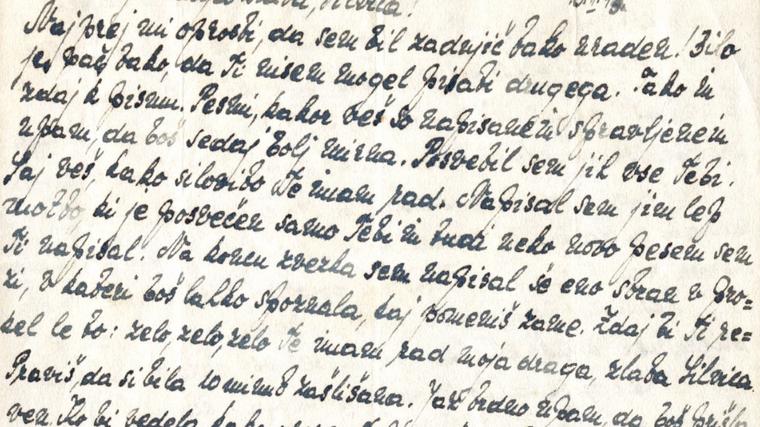 Silvica!
Najprej mi oprosti, da sem bil zadnjič tako vraden! Bilo
je pač tako, da Ti nisem mogel pisati drugega. Tako in
zdaj k pismu. Pesmi, kakor veš so napisane in spravljene in
upam, da boš sedaj bolj mirna. Posvetil sem jih vse Tebi.
Saj veš, kako silovito Te imam rad. Napisal sem jim lep
motto, ki je posvečen samo Tebi in tudi neko novo pesem sem
Ti napisal. Na koncu zvezka sem napisal še eno stran v pro=
zi, v kateri boš lahko spoznala, kaj pomeniš zame. Zdaj bi Ti re=
kel le to: zelo, zelo, zelo Te imam rad moja draga, zlata Silvica.
Praviš, da si bila 10 minut zaslišana. Jaz trdno upam, da boš prišla
ven. Ko bi vedela, kako